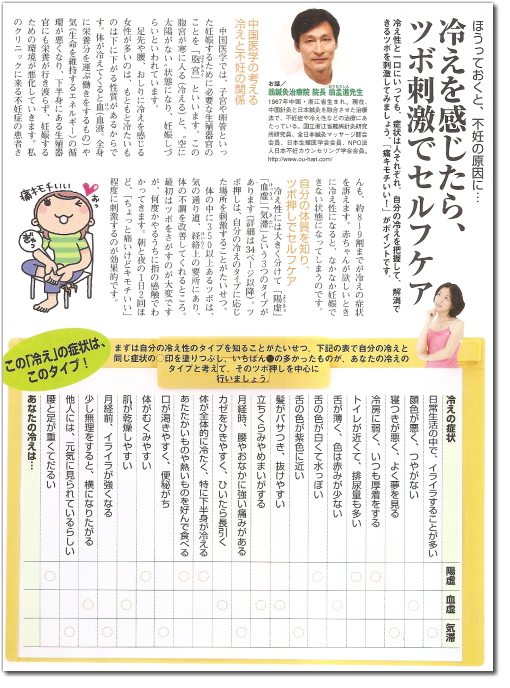 ほうっておくと、不妊の原因に…
冷えを感じたら、
ツボ刺激でセルフケア
冷え性と一口にいっても、症状は人それぞれ。自分の冷えを把握して、解消で
きるツボを刺激してみましょう。「痛キモチいい！」がポイントです。
お話／
鍼灸治療院 院長
先生
1967年中国・浙江省生まれ。現在、
中国針灸と日本鍼灸を融合させた治療
法で、不妊症や冷え性などの治療にあ
たっている。国立浙江省戦病針灸研究
所研究員、全日本鍼灸マッサージ師会
会員、日本生殖医学会会員、NPO法
人日本不妊カウンセリング学会会員。
http://www.ou-hari.com/
中国医学の考える
冷えと不妊の関係
中国医学では、子宮や卵管といっ
た妊娠するために必要な生殖器官の
ことを、「胞宮」といいます。この
胞宮が寒に入る（冷える）と、“空に
太陽がない”状態になり、妊娠しづ
らいといわれています。
足先や腰、おしりに冷えを感じる
女性が多いのは、もともと冷たいも
のは下に下がる性質があるからで
す。体が冷えてくると血（血液。全身
に栄養分を運ぶ働きをするもの）や
気（生命を維持するエネルギー）の循
環が悪くなり、下半身にある生殖器
官にも栄養が行き渡らず、妊娠する
ための環境が悪化していきます。私
のクリニックに来る不妊症の患者さ
んも、約８～９割までが冷えの症状
を訴えます。赤ちゃんが欲しいとき
に冷え性になると、なかなか妊娠で
きない状態になってしまうのです。
自分の体質を知り、
ツボ押しでセルフケア
冷え性には大きく分けて「陽虚」
「血虚」「気滞」という３つのタイプが
あります（詳細は34ページ以降）。ツ
ボ押しは、自分の冷えのタイプに応じ
た場所を刺激することがたいせつ。
体の中に350以上あるツボは、
気の通り道、経絡上の要所にあり、
体の不調を改善してくれるところ。
最初はツボをさがすのが大変です
が、何度かやるうちに指の感触でわ
かってきます。朝と夜の１日２回ほ
ど、「ちょっと痛いけどキモチいい」
程度に刺激するのが効果的です。
痛キモチいい
ぎゅっ
この「冷え」の症状は、
このタイプ！
まずは自分の冷え性のタイプを知ることがたいせつ、下記の表で自分の冷えと
同じ症状の○印を塗りつぶし、いちばん●の多かったものが、あなたの冷えの
タイプと考えて、そのツボ押しを中心に
行いましょう
冷えの症状
陽虚
血虚
気滞
日常生活の中で、イライラすることが多い
顔色が悪く、つやがない
寝つきが悪く、よく夢を見る
冷房に弱く、いつも厚着をする
トイレが近くて、排尿量も多い
舌が薄く、色は赤みが少ない
舌の色が白くて水っぽい
舌の色が紫色に近い
髪がパサつき、抜けやすい
立ちくらみやめまいがする
月経時、腰やおなかに強い痛みがある
カゼをひきやすく、ひいたら長引く
体が全体的に冷たく、特に下半身が冷える
あたたかいものや熱いものを好んで食べる
口が渇きやすく、便秘がち
体がむくみやすい
肌が乾燥しやすい
月経前、イライラが強くなる
少し無理をすると、横になりたがる
他人には、元気に見られているらしい
腰と足が重くてだるい
あなたの冷えは…